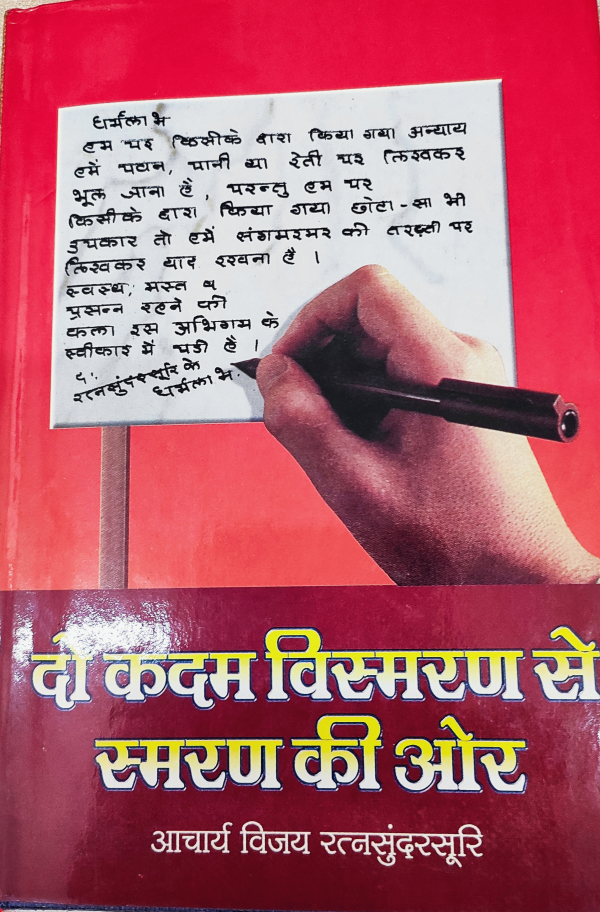 धर्मलाभ
हम पर किसीके द्वारा किया गया अन्याय
हमें पवन, पानी या रेती पर लिखकर
भूल जाना है, परन्तु हम पर
किसीके द्वारा किया गया छोटा-सा भी
उपकार तो हमें संगमरमर की तख्ती पर
लिखकर याद रखना है ।
स्वस्थ, मस्त व
प्रसन्न रहने की
कला इस अभिगम के
स्वीकार में पडी है ।
द:
रत्नसुंदरसूरि के
धर्मलाभ.
दो कदम विस्मरण से
स्मरण की ओर
आचार्य विजय रत्नसुंदरसूरि